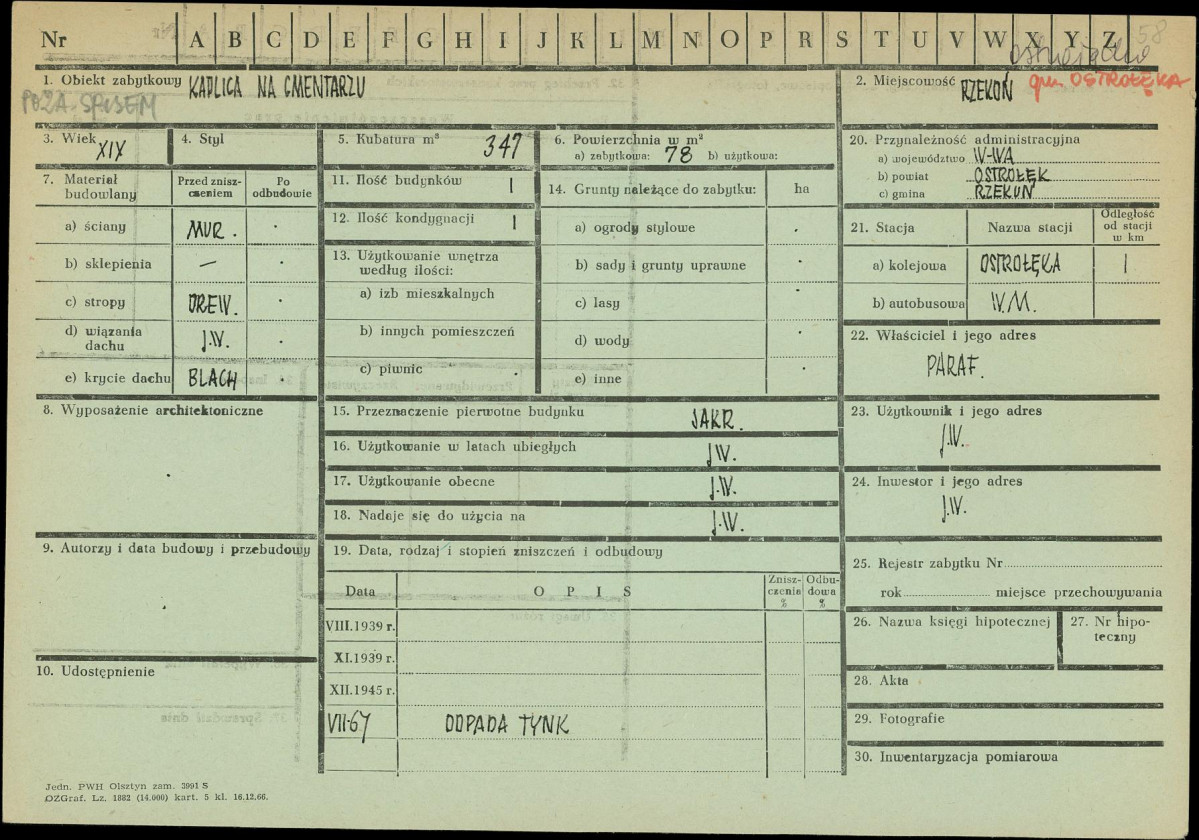 Nr A B C D E F G H I J K L M N O P R S T U V W X Y Z
58
1. Obiekt zabytkowy KAPLICA NA CMENTARZU
POZA SPISEM
2. Miejscowość RZEKUŃ gm. OSTROŁĘKA
3. Wiek XIX
4. Styl
5. Kubatura m³ 347
6. Powierzchnia w m²
a) zabytkowa: 78 b) użytkowa:
7. Materiał budowlany
Przed zniszczeniem
Po odbudowie
a) ściany MUR.
b) sklepienia —
c) stropy DREW.
d) wiązania dachu J.W.
e) krycie dachu BLACH
8. Wyposażenie architektoniczne
9. Autorzy i data budowy i przebudowy
10. Udostępnienie
11. Ilość budynków 1
12. Ilość kondygnacji 1
13. Użytkowanie wnętrza
według ilości:
a) izb mieszkalnych
b) innych pomieszczeń
c) piwnic
14. Grunty należące do zabytku: ha
a) ogrody stylowe
b) sady i grunty uprawne
c) lasy
d) wody
e) inne
15. Przeznaczenie pierwotne budynku SAKR.
16. Użytkowanie w latach ubiegłych J.W.
17. Użytkowanie obecne J.W.
18. Nadaje się do użycia na J.W.
19. Data, rodzaj i stopień zniszczeń i odbudowy
Data OPIS Zniszczenia % Odbudowa %
VIII.1939 r.
XI.1939 r.
XII.1945 r.
VII-67 ODPADA TYNK
20. Przynależność administracyjna
a) województwo W-WA
b) powiat OSTROŁĘK
c) gmina RZEKUŃ
21. Stacja Nazwa stacji Odległość od stacji w km
a) kolejowa OSTROŁĘKA 1
b) autobusowa W.M.
22. Właściciel i jego adres
PARAF.
23. Użytkownik i jego adres
J.W.
24. Inwestor i jego adres
J.W.
25. Rejestr zabytku Nr
rok miejsce przechowywania
26. Nazwa księgi hipotecznej
27. Nr hipoteczny
28. Akta
29. Fotografie
30. Inwentaryzacja pomiarowa
Jedn. PWH Olsztyn zam. 3991 S
OZGraf. Lz. 1882 (14.000) kart. 5 kl. 16.12.66.